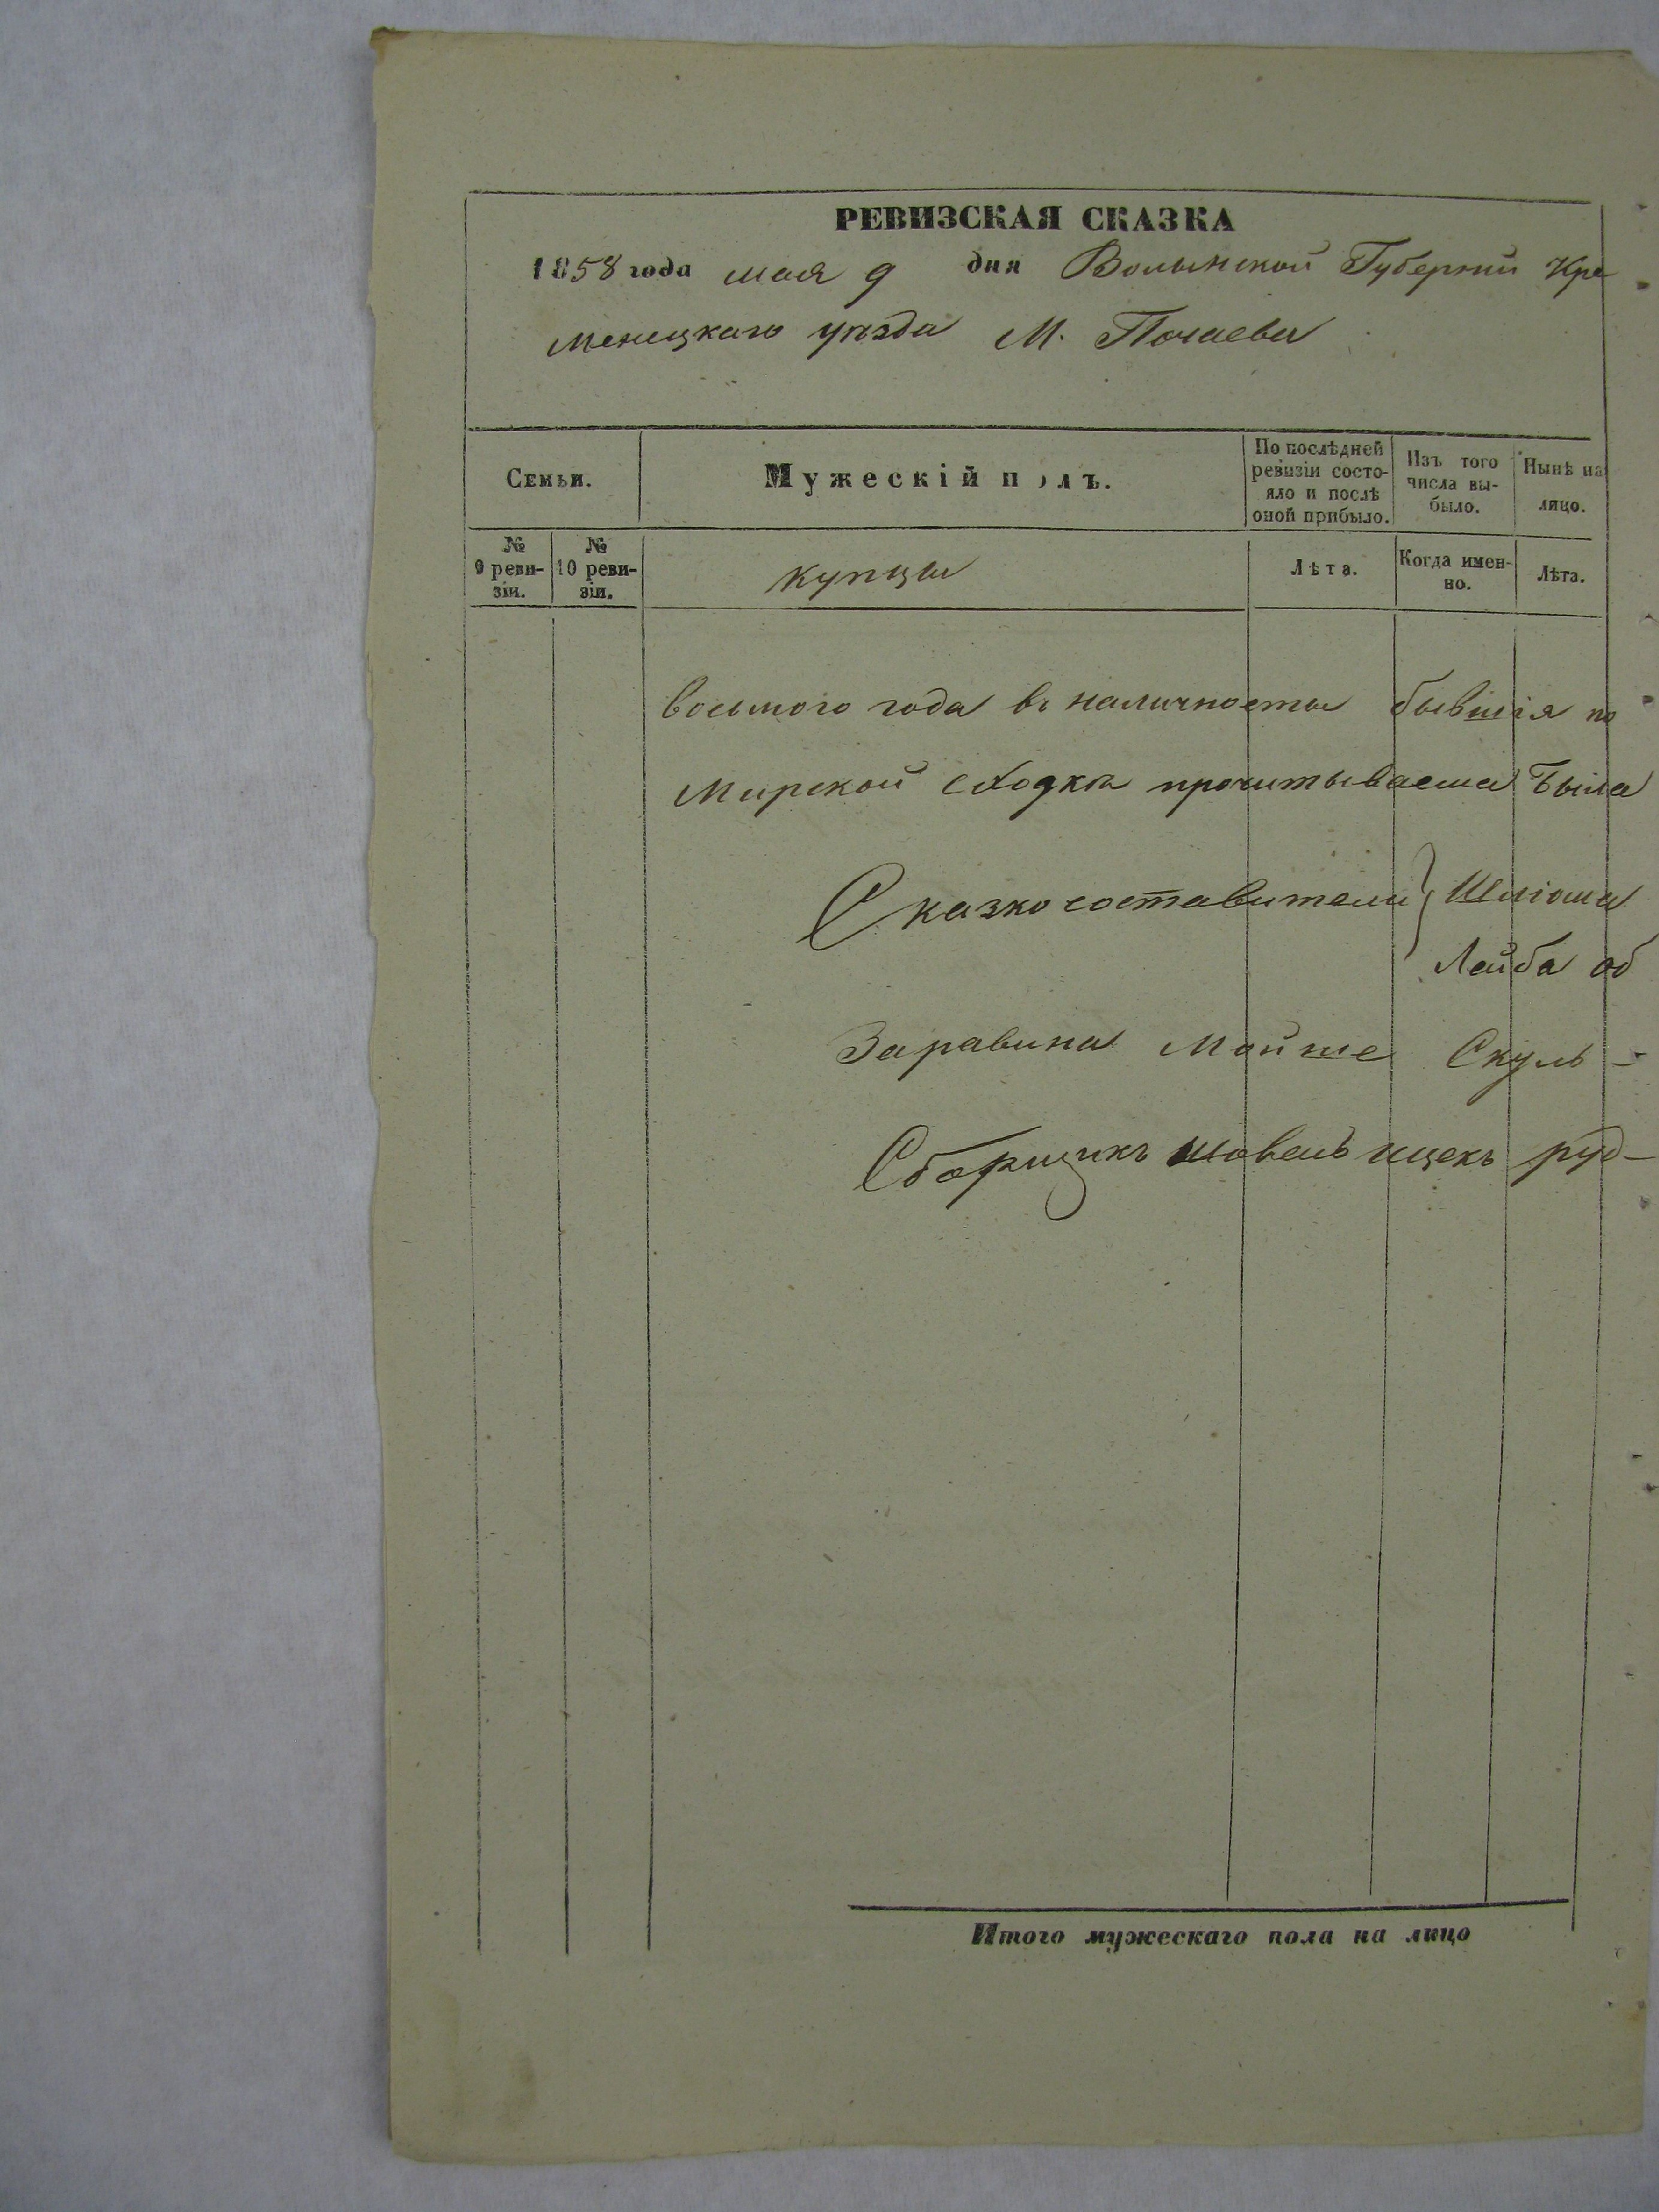 РЕВИЗСКАЯ СКАЗКА
1858 года мая 9 дня Волынской Губерніи Кре
менецкаго уѣзда М. Почаева
Семьи.
Мужескій полъ.
По послѣдней ревизіи состо-
яло и послѣ оной прибыло.
Изъ того числа вы-
было.
Нынѣ на лицо.
№ 9 реви-
зіи.
№ 10 реви-
зіи.
купцы
Лѣта.
Когда имен-
но.
Лѣта.
восьмого года въ наличности бывшія по
Мирской сходкѣ прочитываема была
Сказкосоставители } Шліома
Лейба об
За равина Мойше Скуль-
Сборщикъ шовель ицекъ руд-
Итого мужескаго пола на лицо